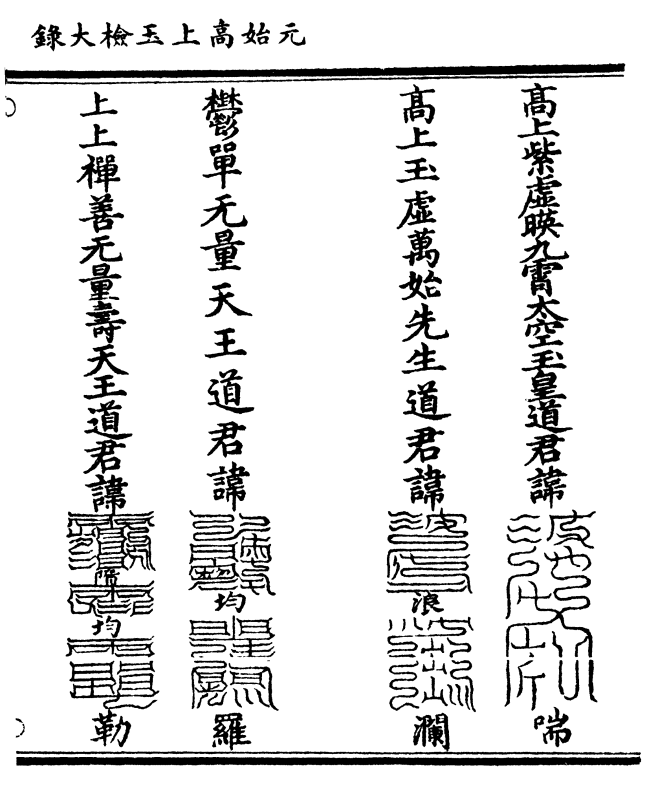 元始高上玉檢大錄
高上紫虛暎九霄太空玉皇道君諱
喘
高上玉虛萬始先生道君諱
浪
瀾
鬱單无量天王道君諱
均
羅
上上禪善无量壽天王道君諱
均
勒